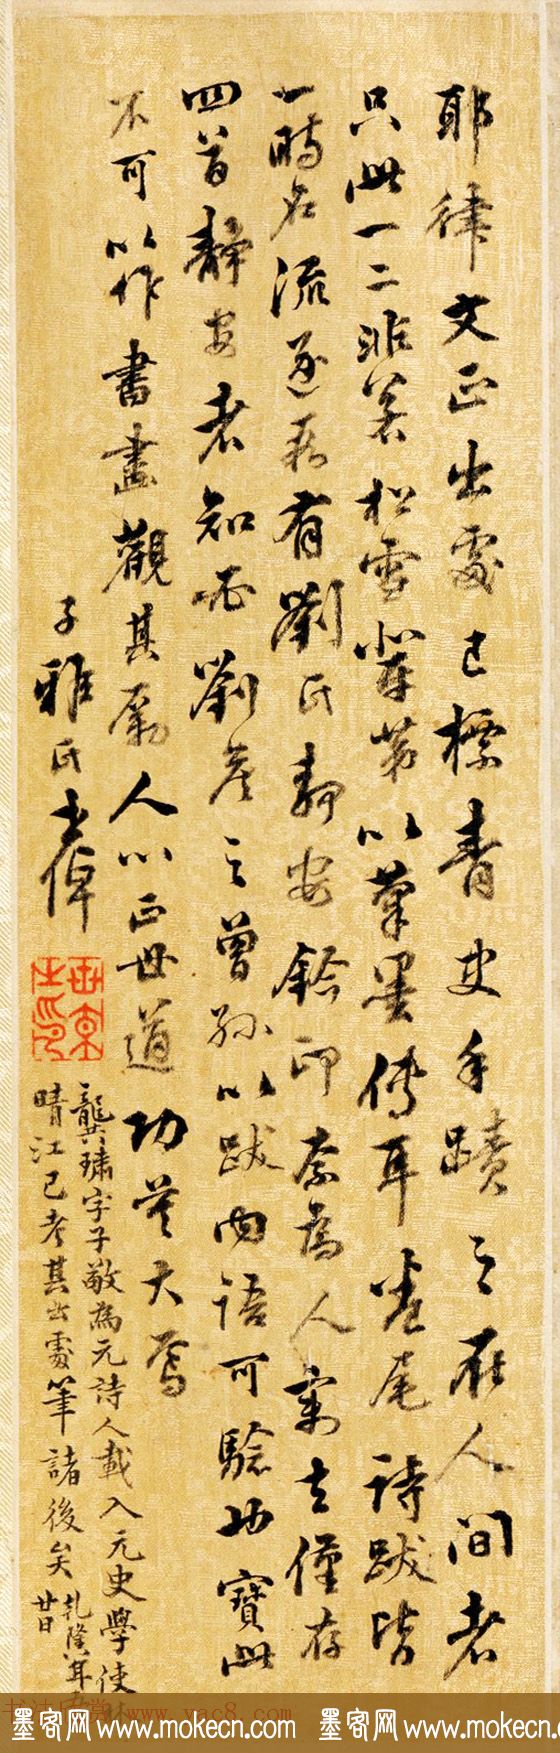 耶律文正出處已標青史手蹟之在人間者
只此一二非若松雪輩第以筆墨傳耳卷尾詩跋皆
一時名流逐段有劉氏靜安鈐印奈為人竊去僅存
四首靜安者知必劉之曾孫以跋內語可驗也寶此
不可以作書畫觀其勵人心正世道功莫大焉
子雅氏士倬
龔璛字子敬為元詩人載入元史學使林
晴江已考其出處筆諸後矣
乾隆年五
廿日
www.yac8.com
墨客网 www.mokecn.com 墨客网 www.mokecn.com